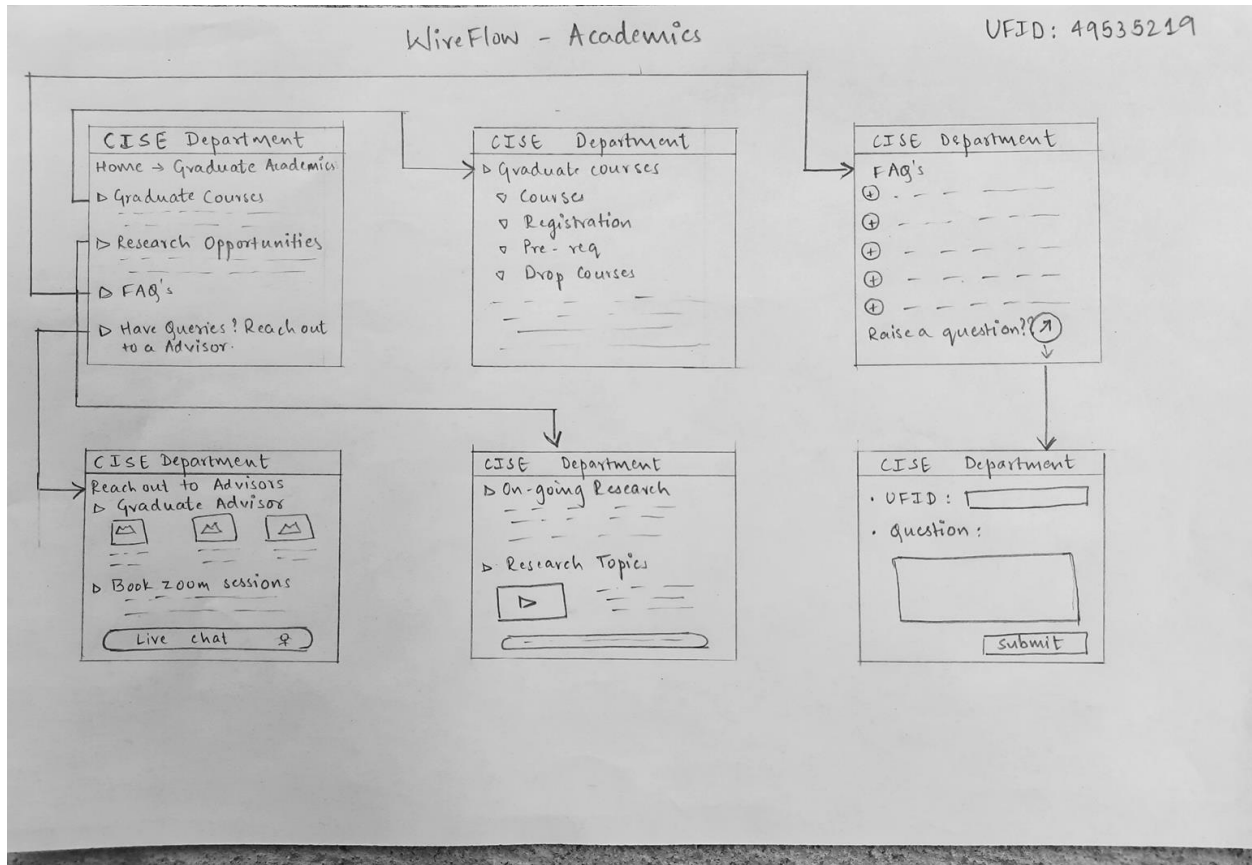 WireFlow - Academics
UFID: 49535219
CISE Department
Home → Graduate Academics
Graduate Courses
Research Opportunities
FAQ's
Have Queries? Reach out
to a Advisor.
CISE Department
Graduate courses
Courses
Registration
Pre-req
Drop Courses
CISE Department
FAQ's
Raise a question??
CISE Department
Reach out to Advisors
Graduate Advisor
Book zoom sessions
Live chat
CISE Department
On-going Research
Research Topics
CISE Department
• UFID:
• Question:
submit